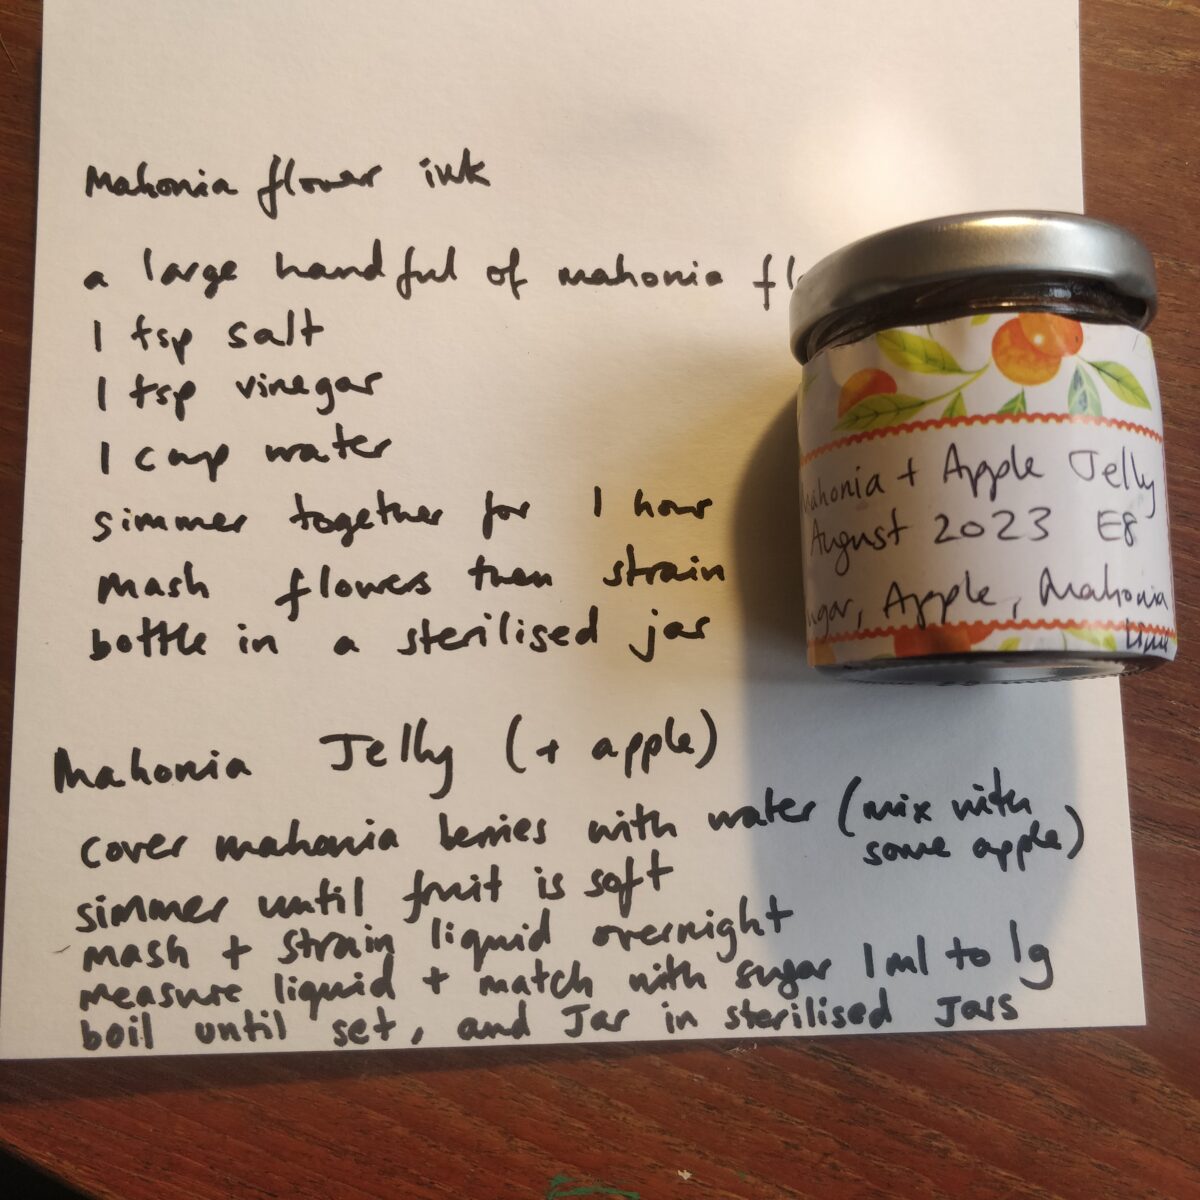 Mahonia flower ink
a large handful of mahonia fl
1 tsp salt
1 tsp vinegar
1 cup water
simmer together for 1 hour
mash flowers then strain
bottle in a sterilised jar
Mahonia Jelly (+ apple)
cover mahonia berries with water (mix with
some apple)
simmer until fruit is soft
mash + strain liquid overnight
measure liquid + match with sugar 1ml to 1g
boil until set, and Jar in sterilised Jars
Mahonia + Apple Jelly
August 2023 E8
ugar, Apple, Mahonia